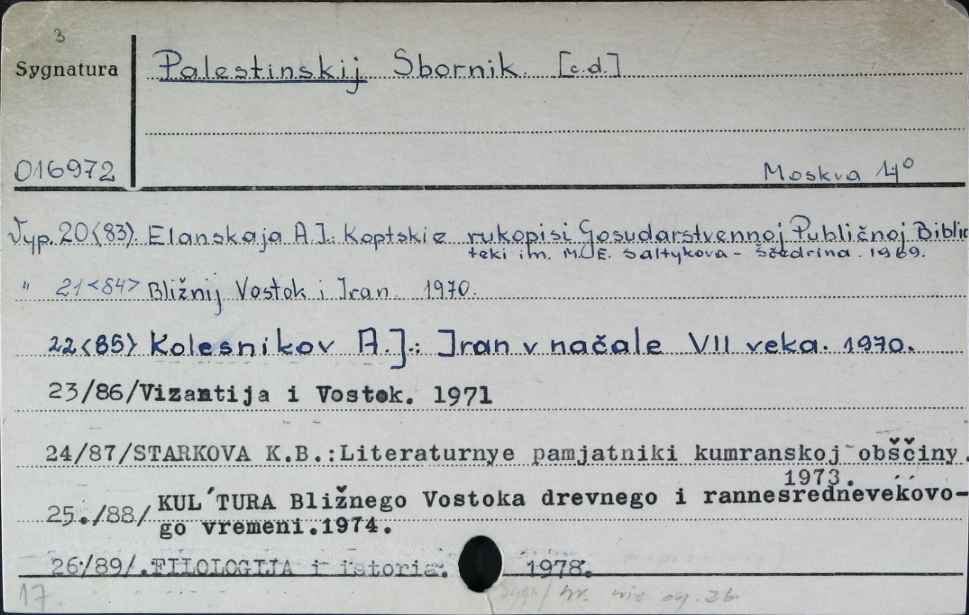 3
Sygnatura
Palestinskij Sbornik. [c.d.]
016972
Moskva 4°
Vyp. 20<83>. Elanskaja A.I.: Koptskie rukopisi Gosudarstvennoj Publičnoj Biblio
teki im. M.E. Saltykova - Ščedrina. 1969.
" 21<84> Bližnij Vostok i Iran. 1970.
22<85> Kolesnikov A.I.: Iran v načale VII veka. 1970.
23/86/Vizantija i Vostok. 1971
24/87/STARKOVA K.B.:Literaturnye pamjatniki kumranskoj obščiny.
1973.
25./88/ KUL´TURA Bližnego Vostoka drevnego i rannesrednevekovo-
go vremeni.1974.
26/89/.FILOLOGIJA i istoria. 1978.
17